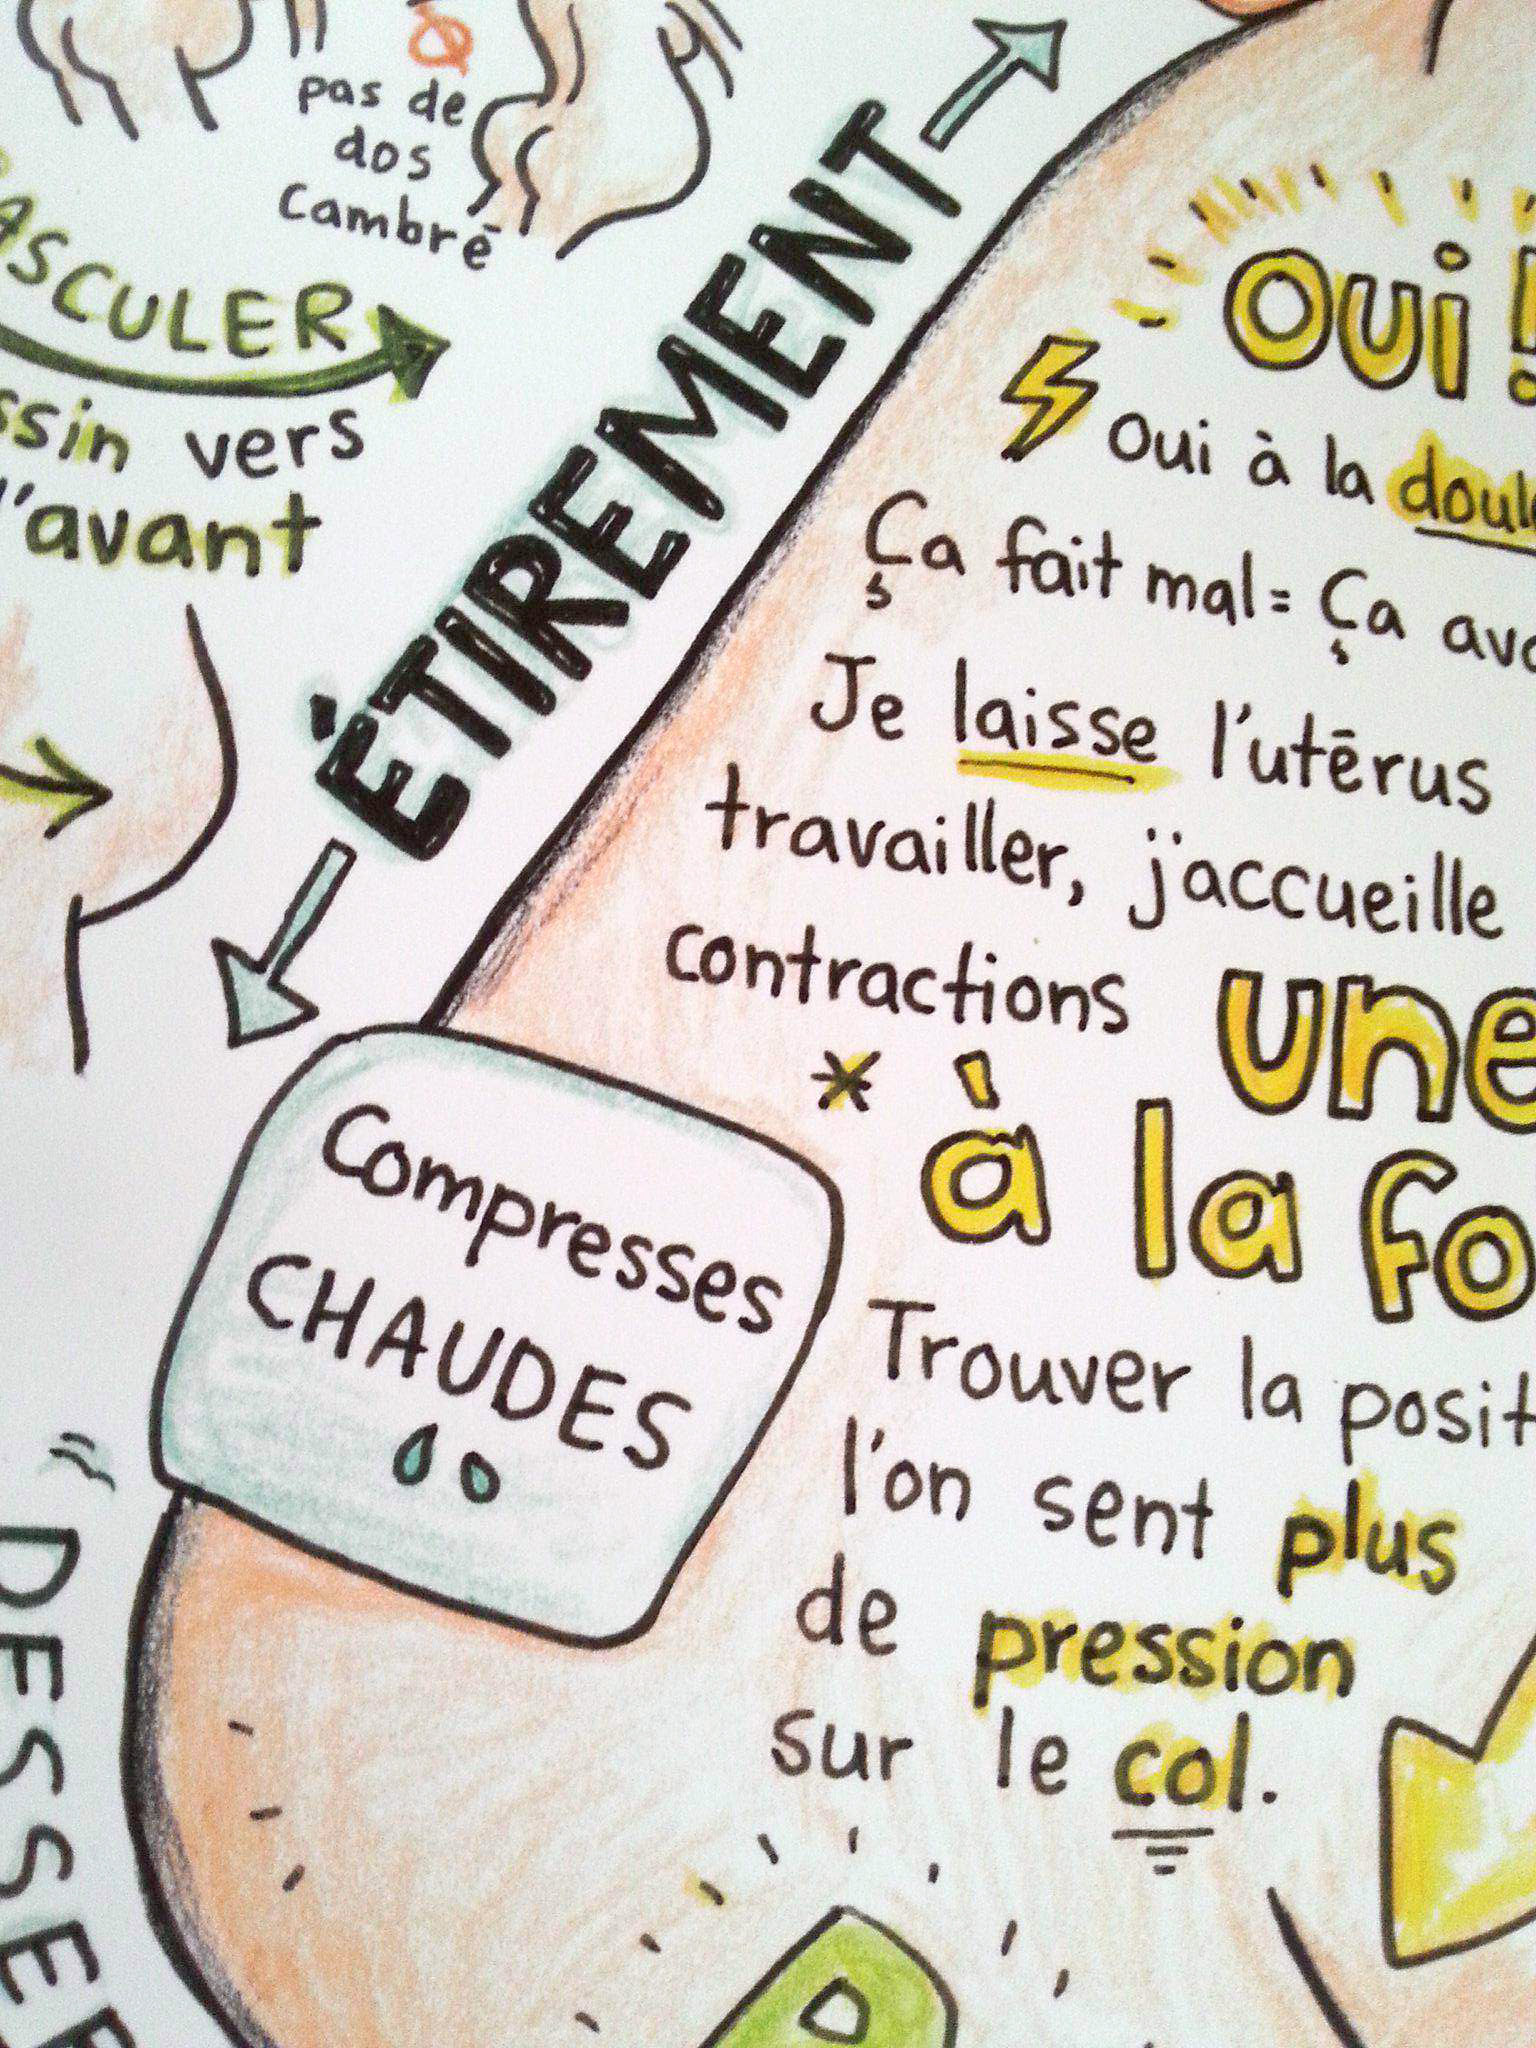 pas de
dos
cambré
vers
l'avant
ÉTIREMENT
OUi !
Oui à la
Ça fait mal = Ça
Je laisse l'utérus
travailler, j'accueille
contractions une
* à la
Compresses
CHAUDES
Trouver la
l'on sent plus
de pression
sur le col.